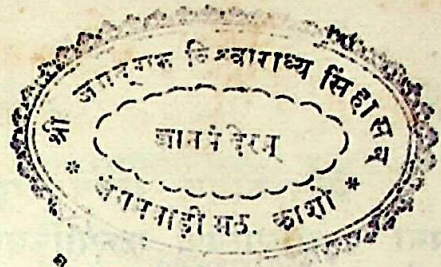 श्री जगद्गुरु विश्वाराध्य सिंहासन
ज्ञानमंदिरम्
* जंगमवाडी मठ. काशी *